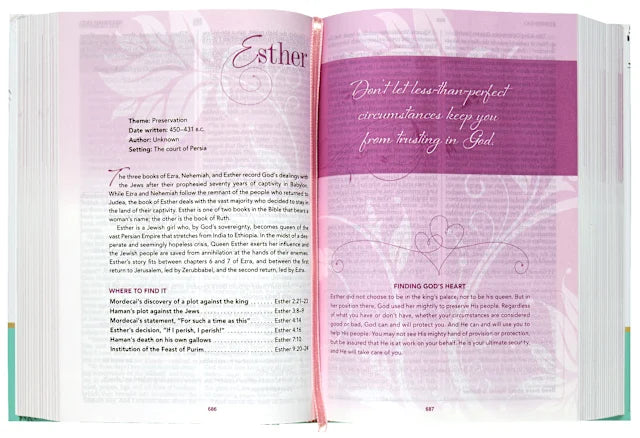 Esther
Theme: Preservation
Date written: 450–431 B.C.
Author: Unknown
Setting: The court of Persia
The three books of Ezra, Nehemiah, and Esther record God's dealings with
the Jews after their prophesied seventy years of captivity in Babylon.
While Ezra and Nehemiah follow the remnant of the people who returned to
Judea, the book of Esther deals with the vast majority who decided to stay in
the land of their captivity. Esther is one of two books in the Bible that bear a
woman's name; the other is the book of Ruth.
Esther is a Jewish girl who, by God's sovereignty, becomes queen of the
vast Persian Empire that stretches from India to Ethiopia. In the midst of a des-
perate and seemingly hopeless crisis, Queen Esther exerts her influence and
the Jewish people are saved from annihilation at the hands of their enemies.
Esther's story fits between chapters 6 and 7 of Ezra, and between the first
return to Jerusalem, led by Zerubbabel, and the second return, led by Ezra.
WHERE TO FIND IT
Mordecai's discovery of a plot against the king . . . . . . . . . . . Esther 2:21–23
Haman's plot against the Jews . . . . . . . . . . . Esther 3:8–9
Mordecai's statement, "For such a time as this" . . . . . . . . . . . Esther 4:14
Esther's decision, "If I perish, I perish!" . . . . . . . . . . . Esther 4:16
Haman's death on his own gallows . . . . . . . . . . . Esther 7:10
Institution of the Feast of Purim . . . . . . . . . . . Esther 9:20–24
686
Don't let less-than-perfect
circumstances keep you
from trusting in God.
FINDING GOD'S HEART
Esther did not choose to be in the king's palace, nor to be his queen. But in
her position there, God used her mightily to preserve His people. Regardless
of what you have or don't have, whether your circumstances are considered
good or bad, God can and will protect you. And He can and will use you to
help His people. You may not see His mighty hand of provision or protection,
but be assured that He is at work on your behalf. He is your ultimate security,
and He will take care of you.
687